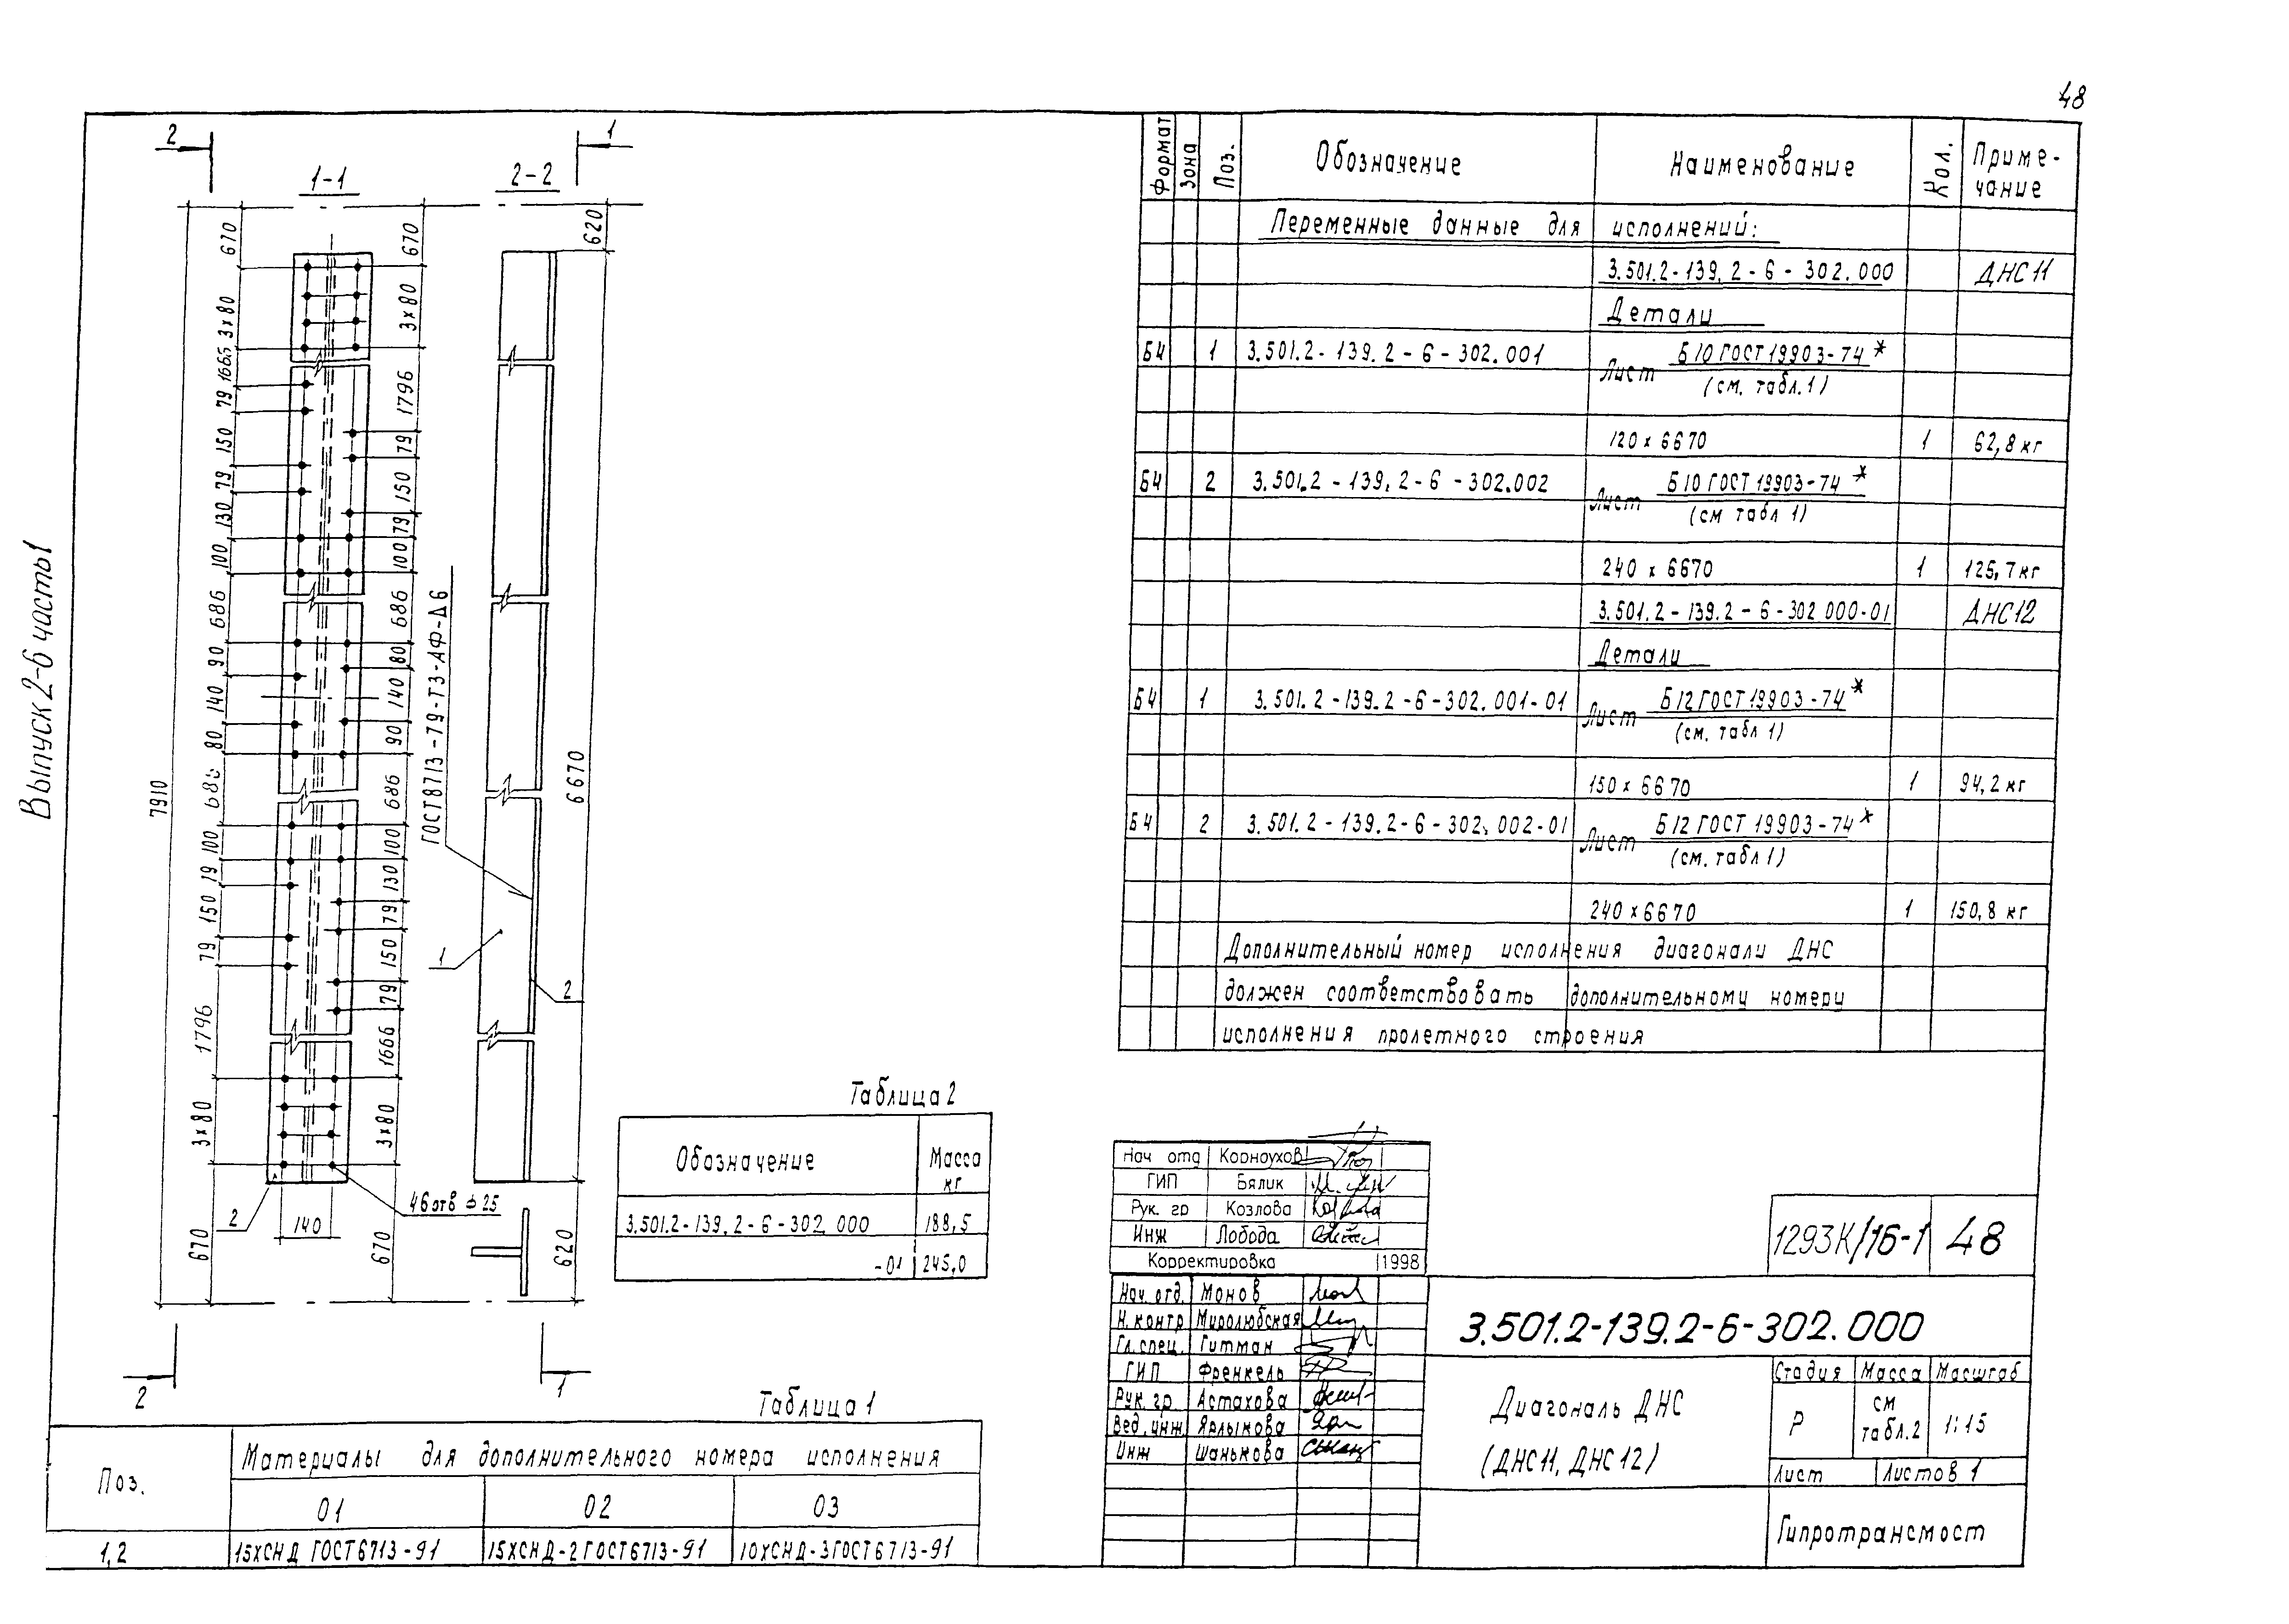 48
Выпуск 2-6 часть 1
2
1
1-1
2-2
670
3×80
1665
79
150
79
130
100
686
90
140
80
686
100
79
150
79
1796
3×80
670
670
3×80
1796
79
150
79
100
686
80
140
90
686
100
130
79
150
79
1666
3×80
670
7910
620
6670
620
ГОСТ 8713-79-Т3-АФ-Δ6
1
2
2
46 отв ф 25
140
2
1
Формат
Зона
Поз.
Обозначение
Наименование
Кол.
Приме-
чание
Переменные данные для исполнений:
3.501.2-139.2-6-302.000 ДНС11
Детали
Б4 1 3.501.2-139.2-6-302.001 Лист Б10 ГОСТ 19903-74*
(см. табл.1)
120×6670 1 62,8 кг
Б4 2 3.501.2-139.2-6-302.002 Лист Б10 ГОСТ 19903-74*
(см табл 1)
240×6670 1 125,7 кг
3.501.2-139.2-6-302 000-01 ДНС12
Детали
Б4 1 3.501.2-139.2-6-302.001-01 Лист Б12 ГОСТ 19903-74*
(см. табл 1)
150×6670 1 94,2 кг
Б4 2 3.501.2-139.2-6-302.002-01 Лист Б12 ГОСТ 19903-74*
(см. табл 1)
240×6670 1 150,8 кг
Дополнительный номер исполнения диагонали ДНС
должен соответствовать дополнительному номеру
исполнения пролетного строения
Таблица 2
Обозначение Масса
кг
3.501.2-139.2-6-302.000 188,5
-01 245,0
Таблица 1
Поз. Материалы для дополнительного номера исполнения
01 02 03
1,2 15ХСНД ГОСТ 6713-91 15ХСНД-2 ГОСТ 6713-91 10ХСНД-3 ГОСТ 6713-91
Нач отд Корноухов
ГИП Бялик
Рук. гр Козлова
Инж Лобода
Корректировка 1998
Нач. отд. Монов
Н. контр Миролюбская
Гл. спец. Гитман
ГИП Френкель
Рук. гр Астахова
Вед. инж Ярлыкова
Инж Шанькова
1293К/16-1 48
3.501.2-139.2-6-302.000
Диагональ ДНС
(ДНС11, ДНС12)
Стадия Масса Масштаб
Р см
табл.2 1:15
Лист Листов 1
Гипротрансмост